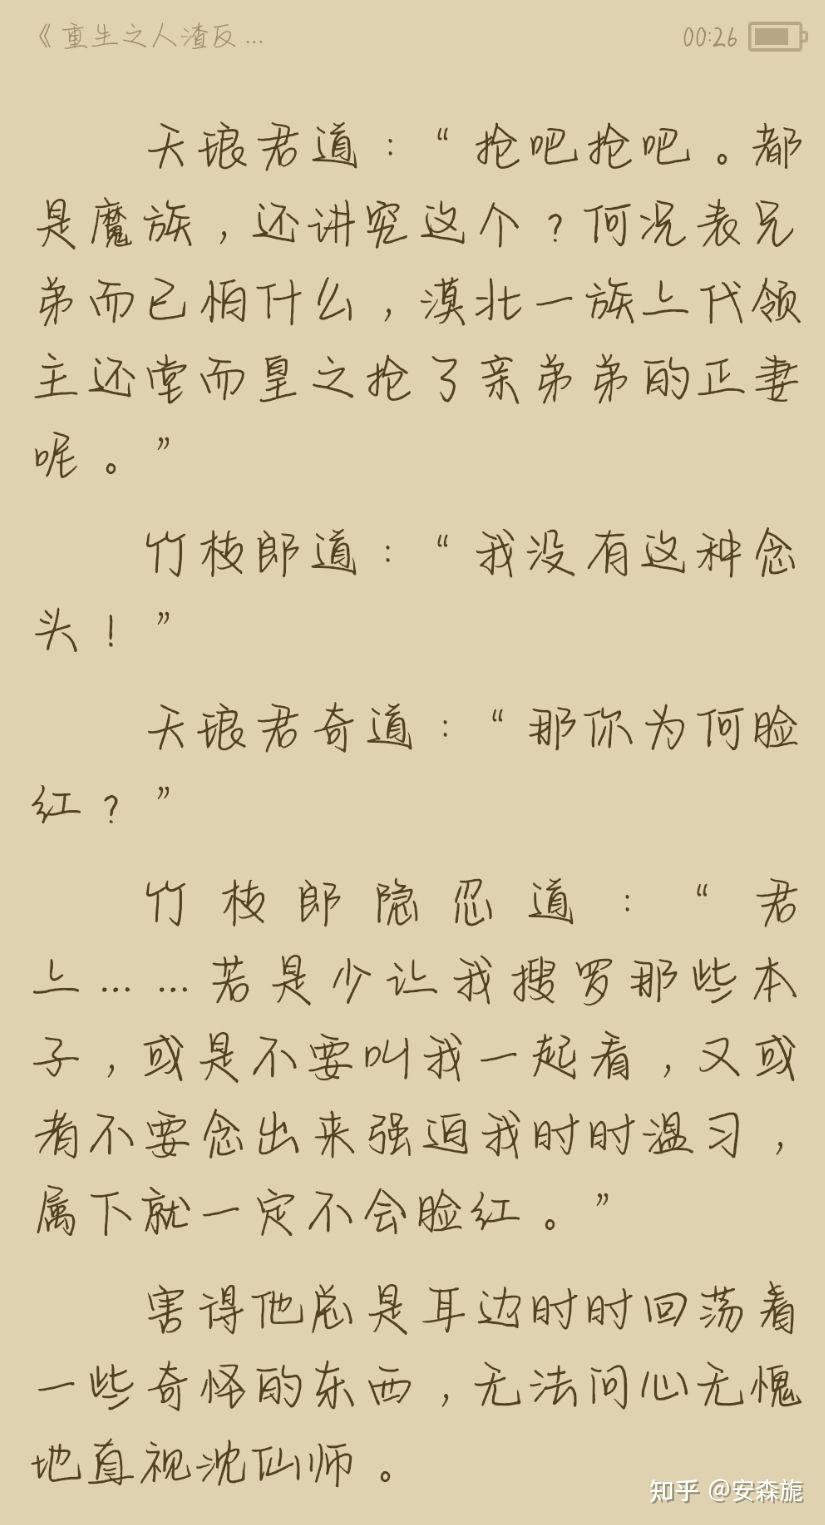 《重生之人渣反... 00:26
天琅君道：“抢吧抢吧。都
是魔族，还讲究这个？何况表兄
弟而已怕什么，漠北一族上代领
主还堂而皇之抢了亲弟弟的正妻
呢。”
竹枝郎道：“我没有这种念
头！”
天琅君奇道：“那你为何脸
红？”
竹枝郎隐忍道：“君
上……若是少让我搜罗那些本
子，或是不要叫我一起看，又或
者不要念出来强迫我时时温习，
属下就一定不会脸红。”
害得他总是耳边时时回荡着
一些奇怪的东西，无法问心无愧
地直视沈仙师。
知乎 @安森旎